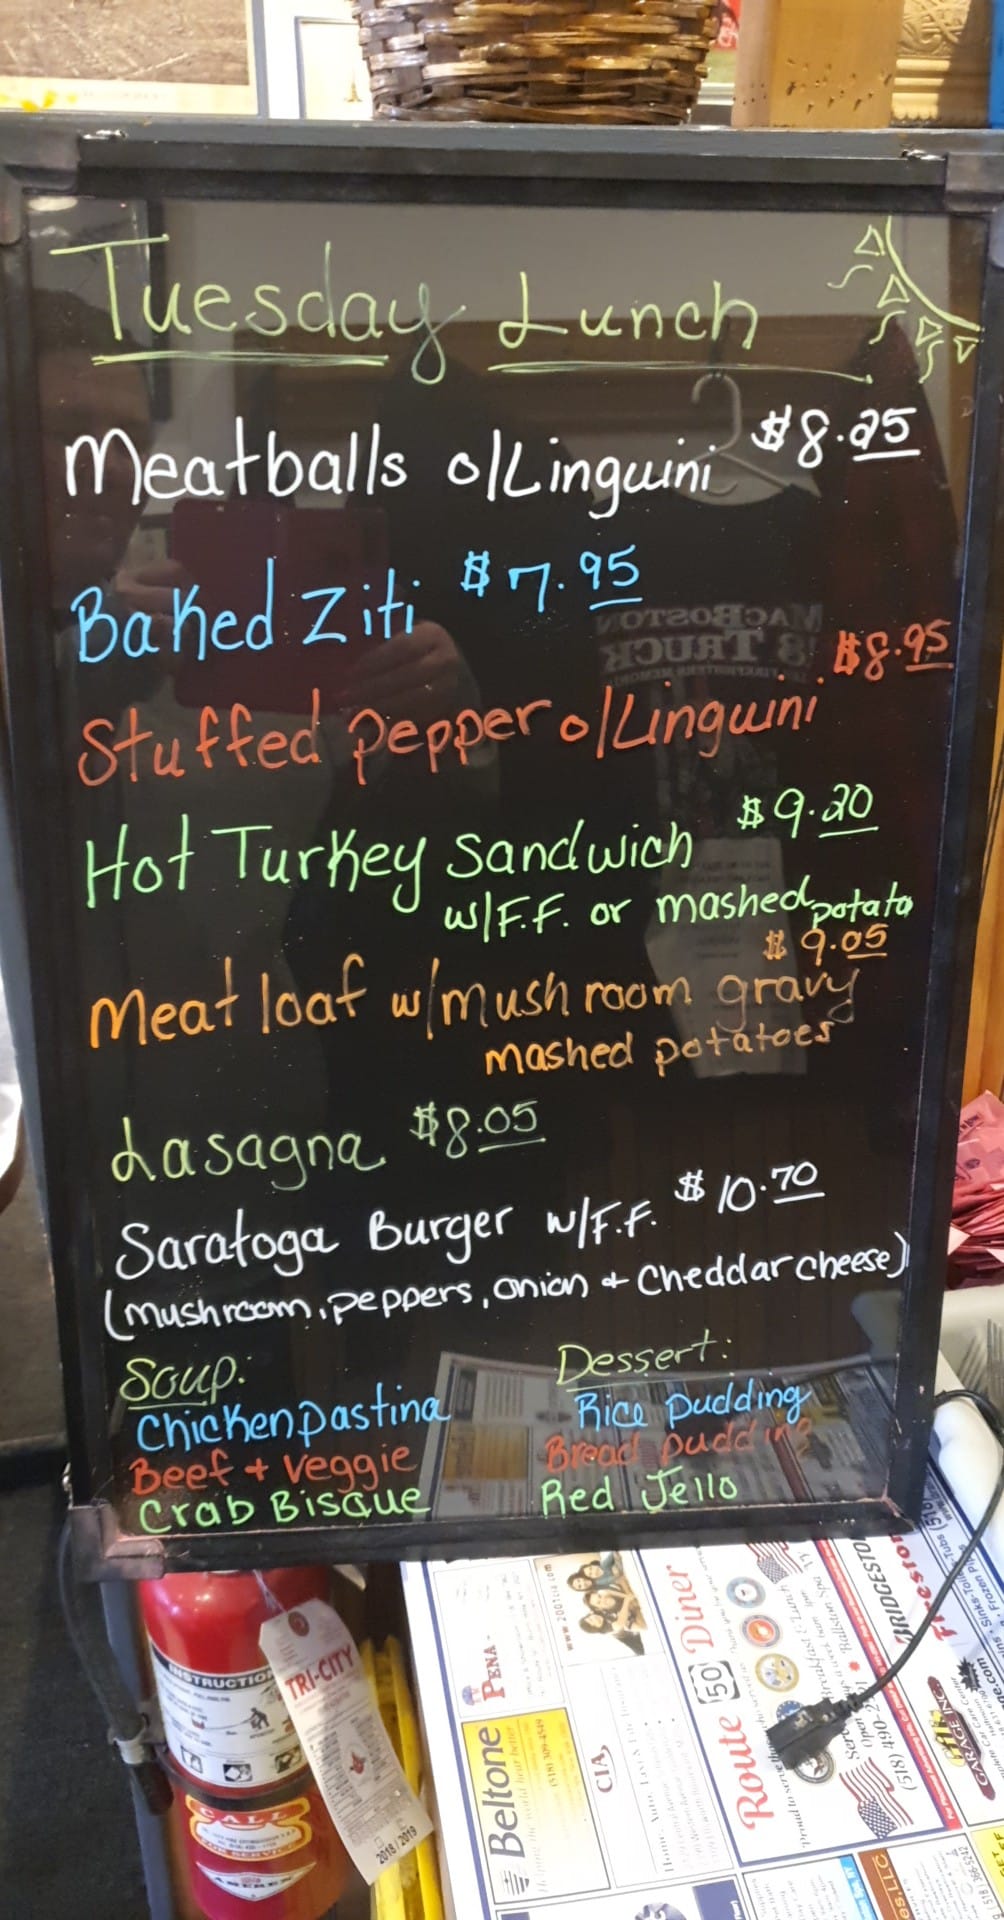 Tuesday Lunch
Meatballs o/Linguini $8.25
Baked Ziti $7.95
Stuffed pepper o/Linguini $8.95
Hot Turkey Sandwich $9.20
w/F.F. or mashed potato
Meat loaf w/mushroom gravy $9.05
mashed potatoes
Lasagna $8.05
Saratoga Burger w/F.F. $10.70
(mushroom, peppers, onion + Cheddar cheese)
Soup:
Chicken pastina
Beef + Veggie
Crab Bisque
Dessert:
Rice pudding
Bread pudding
Red Jello
INSTRUCTION
TRI-CITY
CALL
FOR SERVICE
AMEREX
2018/2019
PENA
Beltone
(518) 309-4849
CIA
Route 50 Diner
BRIDGESTO
Firesto
GARAGE INC.